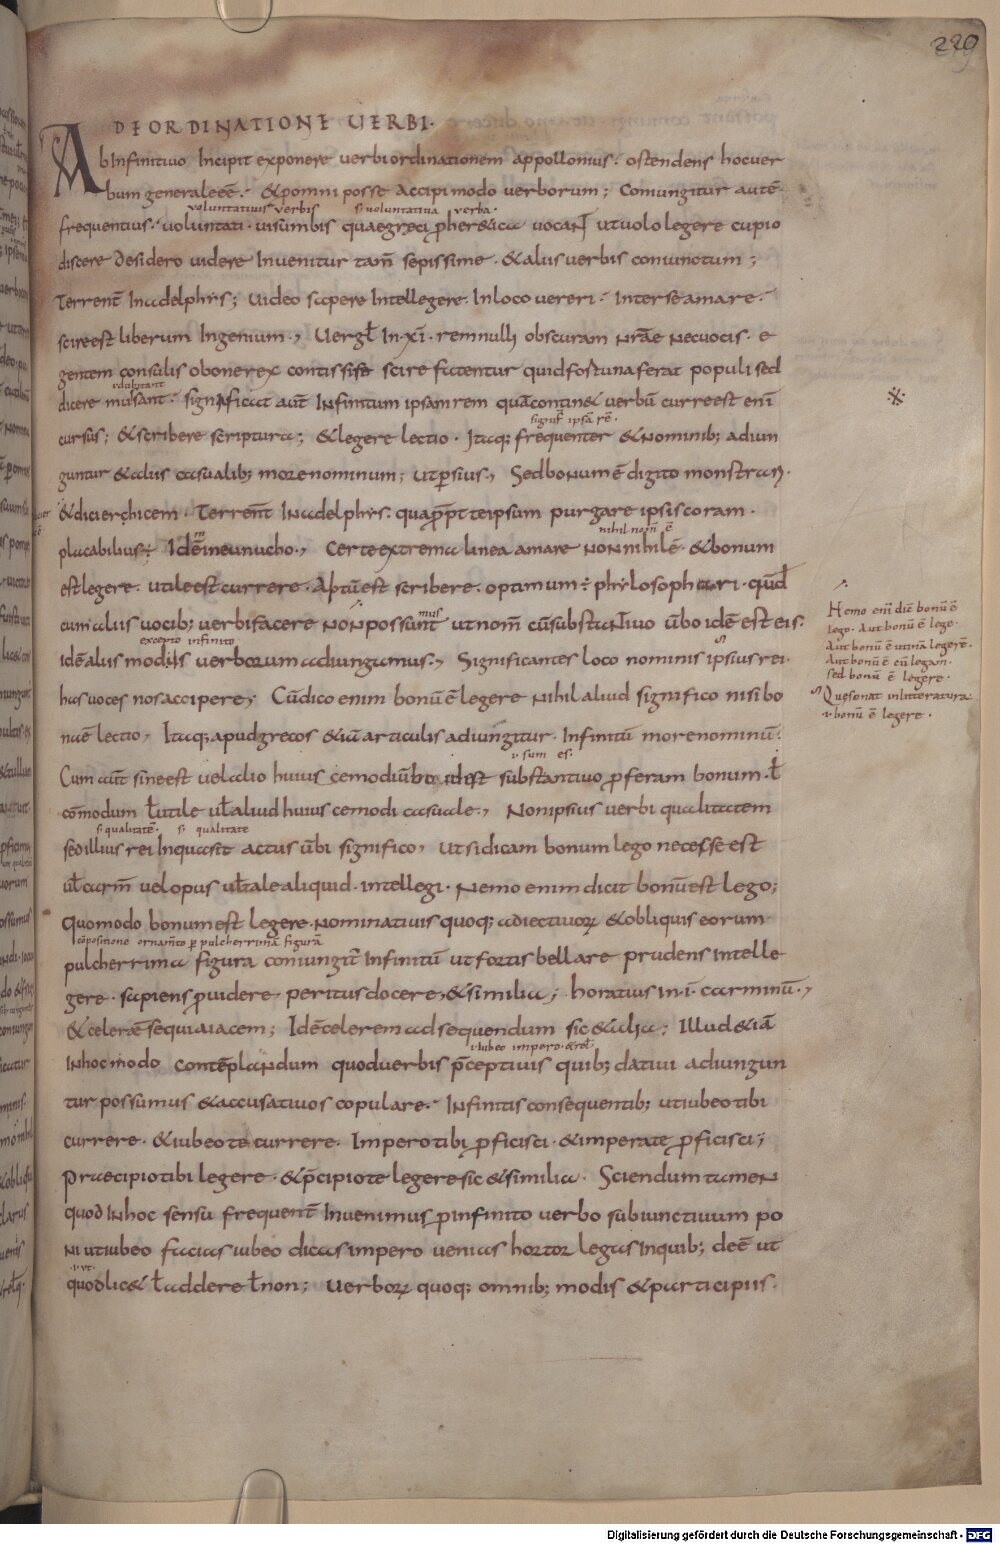 229
DE ORDINATIONE UERBI.
Ab Infinitiuo Incipit exponere uerbi ordinationem appollonius. ostendens hoc uer
bum generale eē. & pomni posse Accipi modo uerborum; Coniungitur autē
uoluntatiuis uerbis s̄ uoluntatiua uerba.
frequentius. uoluntati uis uerbis quae greci proher&ica uocant ut uolo legere cupio
discere desidero uidere Inuenitur tam̄ sepissime. & aliis uerbis coniunctum;
Terrent̄ In adelphys; Uideo sapere Intellegere. In loco uereri. Inter se amare.
scire est liberum Ingenium., Uergł In.xi. rem nulli obscuram nr̄ae nec uocis. e
gentem consulis o bone rex concti se scire fatentur quid fortuna ferat populi sed
ł dubitant
dicere musant. significat aut̄ Infinitum ipsam rem quā contin& uerbū currere est eni
signif ipsā rē.
cursus; & scribere scriptura; & legere lectio. Itaq; frequenter & nominib; adiun
guntur & aliis casualib; more nominum; ut persius., Sed bonum ē digito monstrari.
& dicier hic em. Terrent̄ In adelphys. quappt te ipsum purgare ipsis coram.
nihil nom̄ ē
placabilius ÷ Idē in eunucho., Certe extrema linea amare non nihil ē. & bonum
est legere. utile est currere. Aptū est scribere. optimum ÷ phylosophari. quod
cum aliis uocib; uerbi facere non possunt ut nom̄ cū substantiuo ūbo idē est eis.
excepto infinito
idē aliis modis uerborum adiungamus., Significantes loco nominis ipsius rei.
has uoces nos accipere; Cū dico enim bonū ē legere nihil aliud significo nisi bo
na ē lectio, Itaq; apud grecos & iā articulis adiungitur. Infinitū more nominū.
i. sum es.
Cum aūt sine est uel alio huius cemodi ūbo id est substantiuo proferam bonum. ł
cōmodum ł utile uł aliud huius cemodi casuale., Non ipsius uerbi qualitatem
s̄ qualitatē. s̄ qualitate
sed illius rei In qua sit actus ūbi significo, ut si dicam bonum lego necesse est
uł carm̄ uel opus uł tale aliquid. intellegi. Nemo enim dicit bonū est lego;
Quomodo bonum est legere. Nominatiuis quoq; adiectiuoꝝ & obliquis eorum
cōpositione ornamto p pulcherrimā figurā
pulcherrima figura coniungit̄ Infinitū ut fortis bellare prudens intelle
gere. sapiens puidere, peritus docere, & similia; horatius in.i. carminū.,
& celerē sequi aiacem; Idē celerem ad sequendum sic & alia; Illud & iā
i. iubeo impero. & rel.
In hoc modo contēplandum quod uerbis pceptiuis quib; datiui adiungun
tur possumus & accusatiuos copulare. Infinitis consequentib; ut iubeo tibi
currere. & iubeo te currere. Impero tibi pficisci. & impera te pficisci;
Praecipio tibi legere. & pcipio te legere sic & similia. Sciendum tamen
quod In hoc sensu frequent̄ Inuenimus p infinito uerbo subiunctiuum po
ni ut iubeo facias iubeo dicas impero uenias hortor legas In quib; deē ut
.i. ut.
quod lic& ł addere ł non; Uerboꝝ quoq; omnib; modis & participiis.
Nemo eni diū bonū ē
lego. Aut bonū ē lege.
Aut bonū ē utinā legerē.
Aut bonū ē cū legam.
sed bonū ē legere.
Que sonat in litteratura
i. bonū ē legere.
Digitalisierung gefördert durch die Deutsche Forschungsgemeinschaft - DFG